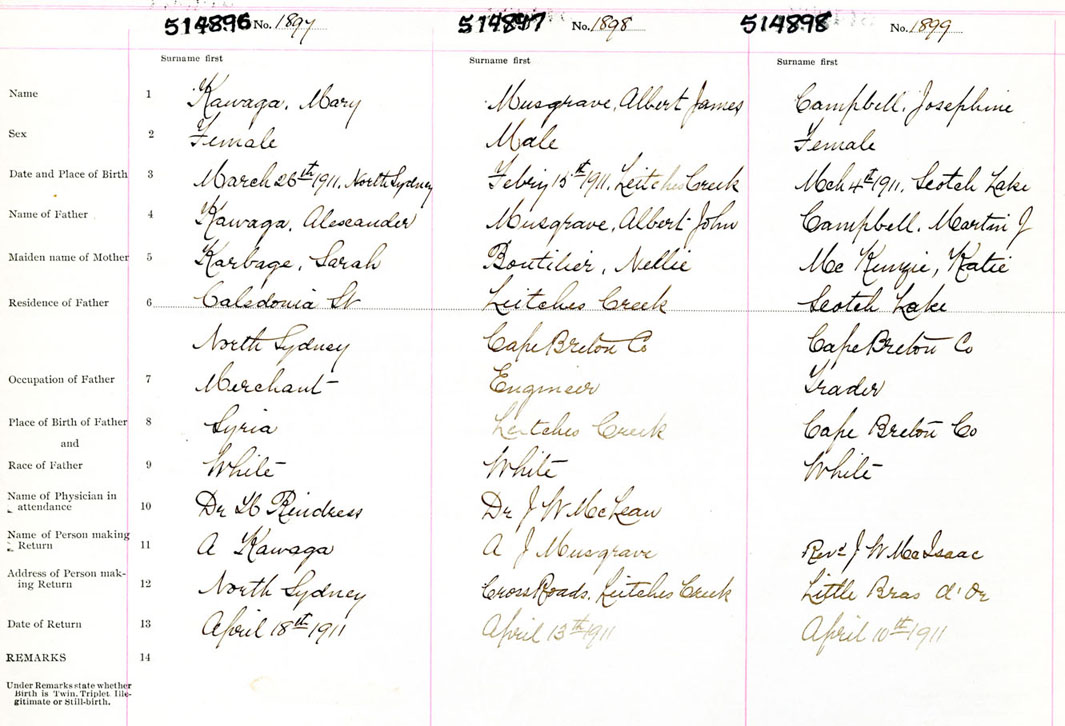 514896 No. 1897 514897 No. 1898 514898 No. 1899
Surname first Surname first Surname first
Name 1 Kawaga, Mary Musgrave, Albert James Campbell, Josephine
Sex 2 Female Male Female
Date and Place of Birth 3 March 26th 1911, North Sydney Febry 15th 1911, Leitches Creek Mch 4th 1911, Scotch Lake
Name of Father 4 Kawaga, Alexander Musgrave, Albert John Campbell, Martin J
Maiden name of Mother 5 Karbage, Sarah Boutilier, Nellie Mc Kenzie, Katie
Residence of Father 6 Caledonia St Leitches Creek Scotch Lake
North Sydney Cape Breton Co Cape Breton Co
Occupation of Father 7 Merchant Engineer Trader
Place of Birth of Father 8 Syria Leitches Creek Cape Breton Co
and
Race of Father 9 White White White
Name of Physician in
attendance 10 Dr Rindress Dr J W McLean
Name of Person making
Return 11 A Kawaga A J Musgrave Revd J W MacIsaac
Address of Person mak-
ing Return 12 North Sydney Cross Roads, Leitches Creek Little Bras d'Or
Date of Return 13 April 18th 1911 April 13th 1911 April 10th 1911
REMARKS 14
Under Remarks state whether
Birth is Twin, Triplet Ille-
gitimate or Still-birth.